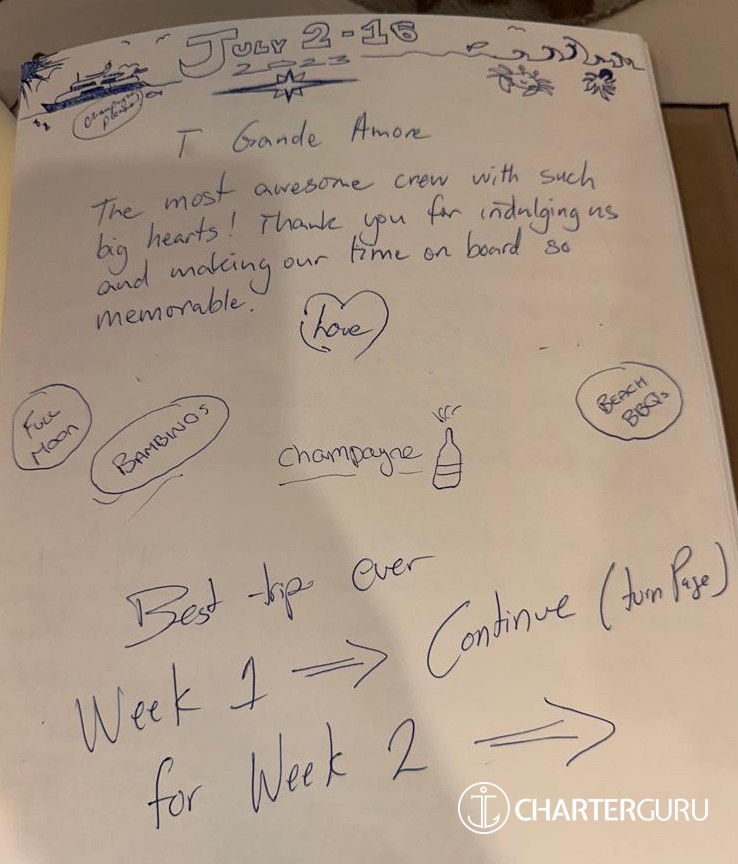 JULY 2-16
2023
champagne please!
T Gande Amore
The most awesome crew with such
big hearts! Thank you for indulging us
and making our time on board so
memorable.
Love
FULL
MOON
BAMBINOS
champagne
BEACH
BBQs
Best trip ever
Week 1 ⇒ Continue (turn Page)
for Week 2 ⇒
CHARTERGURU